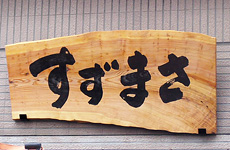 すずまさ